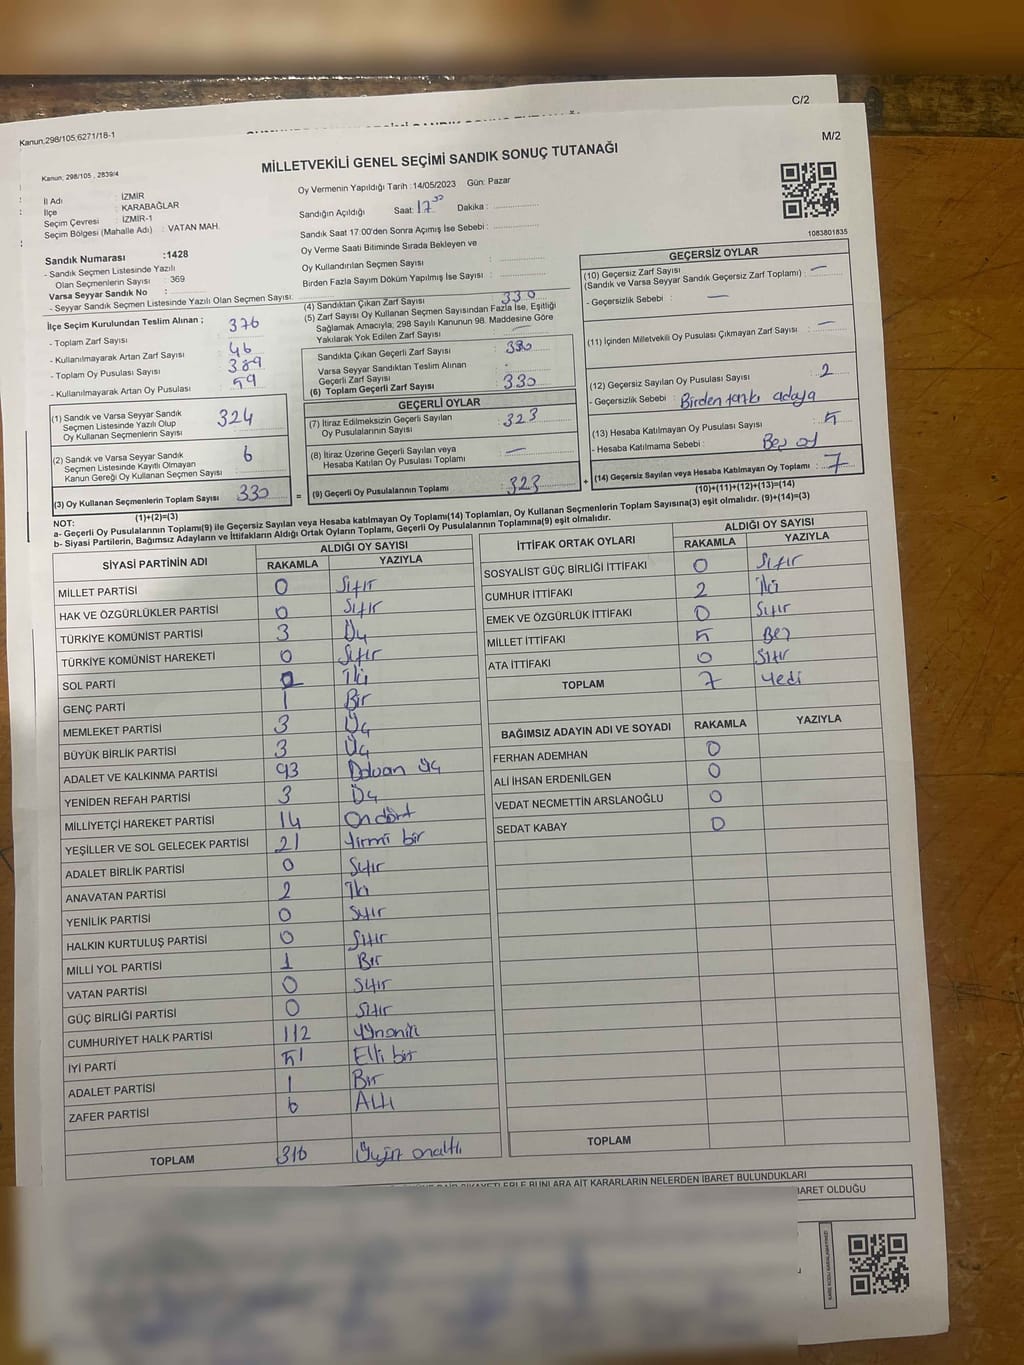 C/2
Kanun,298/105,6271/18-1
M/2
Kanun, 298/105 , 2839/4
MİLLETVEKİLİ GENEL SEÇİMİ SANDIK SONUÇ TUTANAĞI
İl Adı : İZMİR
İlçe : KARABAĞLAR
Seçim Çevresi : İZMİR-1
Seçim Bölgesi (Mahalle Adı) : VATAN MAH.
Sandık Numarası :1428
- Sandık Seçmen Listesinde Yazılı
Olan Seçmenlerin Sayısı : 369
Varsa Seyyar Sandık No :
- Seyyar Sandık Seçmen Listesinde Yazılı Olan Seçmen Sayısı:
Oy Vermenin Yapıldığı Tarih :14/05/2023 Gün: Pazar
Sandığın Açıldığı Saat: 17 Dakika :
Sandık Saat 17:00'den Sonra Açımış İse Sebebi :
Oy Verme Saati Bitiminde Sırada Bekleyen ve
Oy Kullandırılan Seçmen Sayısı :
Birden Fazla Sayım Döküm Yapılmış İse Sayısı :
1083801835
İlçe Seçim Kurulundan Teslim Alınan ;
- Toplam Zarf Sayısı : 376
- Kullanılmayarak Artan Zarf Sayısı : 46
- Toplam Oy Pusulası Sayısı : 389
- Kullanılmayarak Artan Oy Pusulası : 59
(1) Sandık ve Varsa Seyyar Sandık
Seçmen Listesinde Yazılı Olup
Oy Kullanan Seçmenlerin Sayısı : 324
(2) Sandık ve Varsa Seyyar Sandık
Seçmen Listesinde Kayıtlı Olmayan
Kanun Gereği Oy Kullanan Seçmen Sayısı : 6
(3) Oy Kullanan Seçmenlerin Toplam Sayısı : 330
(1)+(2)=(3)
(4) Sandıktan Çıkan Zarf Sayısı : 330
(5) Zarf Sayısı Oy Kullanan Seçmen Sayısından Fazla İse, Eşitliği
Sağlamak Amacıyla; 298 Sayılı Kanunun 98. Maddesine Göre
Yakılarak Yok Edilen Zarf Sayısı : —
Sandıkta Çıkan Geçerli Zarf Sayısı : 330
Varsa Seyyar Sandıktan Teslim Alınan
Geçerli Zarf Sayısı : -
(6) Toplam Geçerli Zarf Sayısı : 330
GEÇERLİ OYLAR
(7) İtiraz Edilmeksizin Geçerli Sayılan
Oy Pusulalarının Sayısı : 323
(8) İtiraz Üzerine Geçerli Sayılan veya
Hesaba Katılan Oy Pusulası Toplamı : —
= (9) Geçerli Oy Pusulalarının Toplamı : 323 +
GEÇERSİZ OYLAR
(10) Geçersiz Zarf Sayısı
(Sandık ve Varsa Seyyar Sandık Geçersiz Zarf Toplamı) : —
- Geçersizlik Sebebi : —
(11) İçinden Milletvekili Oy Pusulası Çıkmayan Zarf Sayısı : —
(12) Geçersiz Sayılan Oy Pusulası Sayısı : 2
- Geçersizlik Sebebi : Birden farklı adaya
(13) Hesaba Katılmayan Oy Pusulası Sayısı : 5
- Hesaba Katılmama Sebebi : Boş oy
(14) Geçersiz Sayılan veya Hesaba Katılmayan Oy Toplamı : 7
(10)+(11)+(12)+(13)=(14)
NOT:
a- Geçerli Oy Pusulalarının Toplamı(9) ile Geçersiz Sayılan veya Hesaba katılmayan Oy Toplamı(14) Toplamları, Oy Kullanan Seçmenlerin Toplam Sayısına(3) eşit olmalıdır. (9)+(14)=(3)
b- Siyasi Partilerin, Bağımsız Adayların ve İttifakların Aldığı Ortak Oyların Toplamı, Geçerli Oy Pusulalarının Toplamına(9) eşit olmalıdır.
SİYASİ PARTİNİN ADI ALDIĞI OY SAYISI
RAKAMLA YAZIYLA
MİLLET PARTİSİ 0 Sıfır
HAK VE ÖZGÜRLÜKLER PARTİSİ 0 Sıfır
TÜRKİYE KOMÜNİST PARTİSİ 3 Üç
TÜRKİYE KOMÜNİST HAREKETİ 0 Sıfır
SOL PARTİ 2 İki
GENÇ PARTİ 1 Bir
MEMLEKET PARTİSİ 3 Üç
BÜYÜK BİRLİK PARTİSİ 3 Üç
ADALET VE KALKINMA PARTİSİ 93 Doksan Üç
YENİDEN REFAH PARTİSİ 3 Üç
MİLLİYETÇİ HAREKET PARTİSİ 14 Ondört
YEŞİLLER VE SOL GELECEK PARTİSİ 21 Yirmi bir
ADALET BİRLİK PARTİSİ 0 Sıfır
ANAVATAN PARTİSİ 2 İki
YENİLİK PARTİSİ 0 Sıfır
HALKIN KURTULUŞ PARTİSİ 0 Sıfır
MİLLİ YOL PARTİSİ 1 Bir
VATAN PARTİSİ 0 Sıfır
GÜÇ BİRLİĞİ PARTİSİ 0 Sıfır
CUMHURİYET HALK PARTİSİ 112 Yüzoniki
İYİ PARTİ 51 Elli bir
ADALET PARTİSİ 1 Bir
ZAFER PARTİSİ 6 Altı
TOPLAM 316 Üçyüz onaltı
İTTİFAK ORTAK OYLARI ALDIĞI OY SAYISI
RAKAMLA YAZIYLA
SOSYALİST GÜÇ BİRLİĞİ İTTİFAKI 0 Sıfır
CUMHUR İTTİFAKI 2 İki
EMEK VE ÖZGÜRLÜK İTTİFAKI 0 Sıfır
MİLLET İTTİFAKI 5 Beş
ATA İTTİFAKI 0 Sıfır
TOPLAM 7 Yedi
BAĞIMSIZ ADAYIN ADI VE SOYADI RAKAMLA YAZIYLA
FERHAN ADEMHAN 0
ALİ İHSAN ERDENİLGEN 0
VEDAT NECMETTİN ARSLANOĞLU 0
SEDAT KABAY 0
TOPLAM
BUNLARA AİT KARARLARIN NELERDEN İBARET BULUNDUKLARI
İBARET OLDUĞU